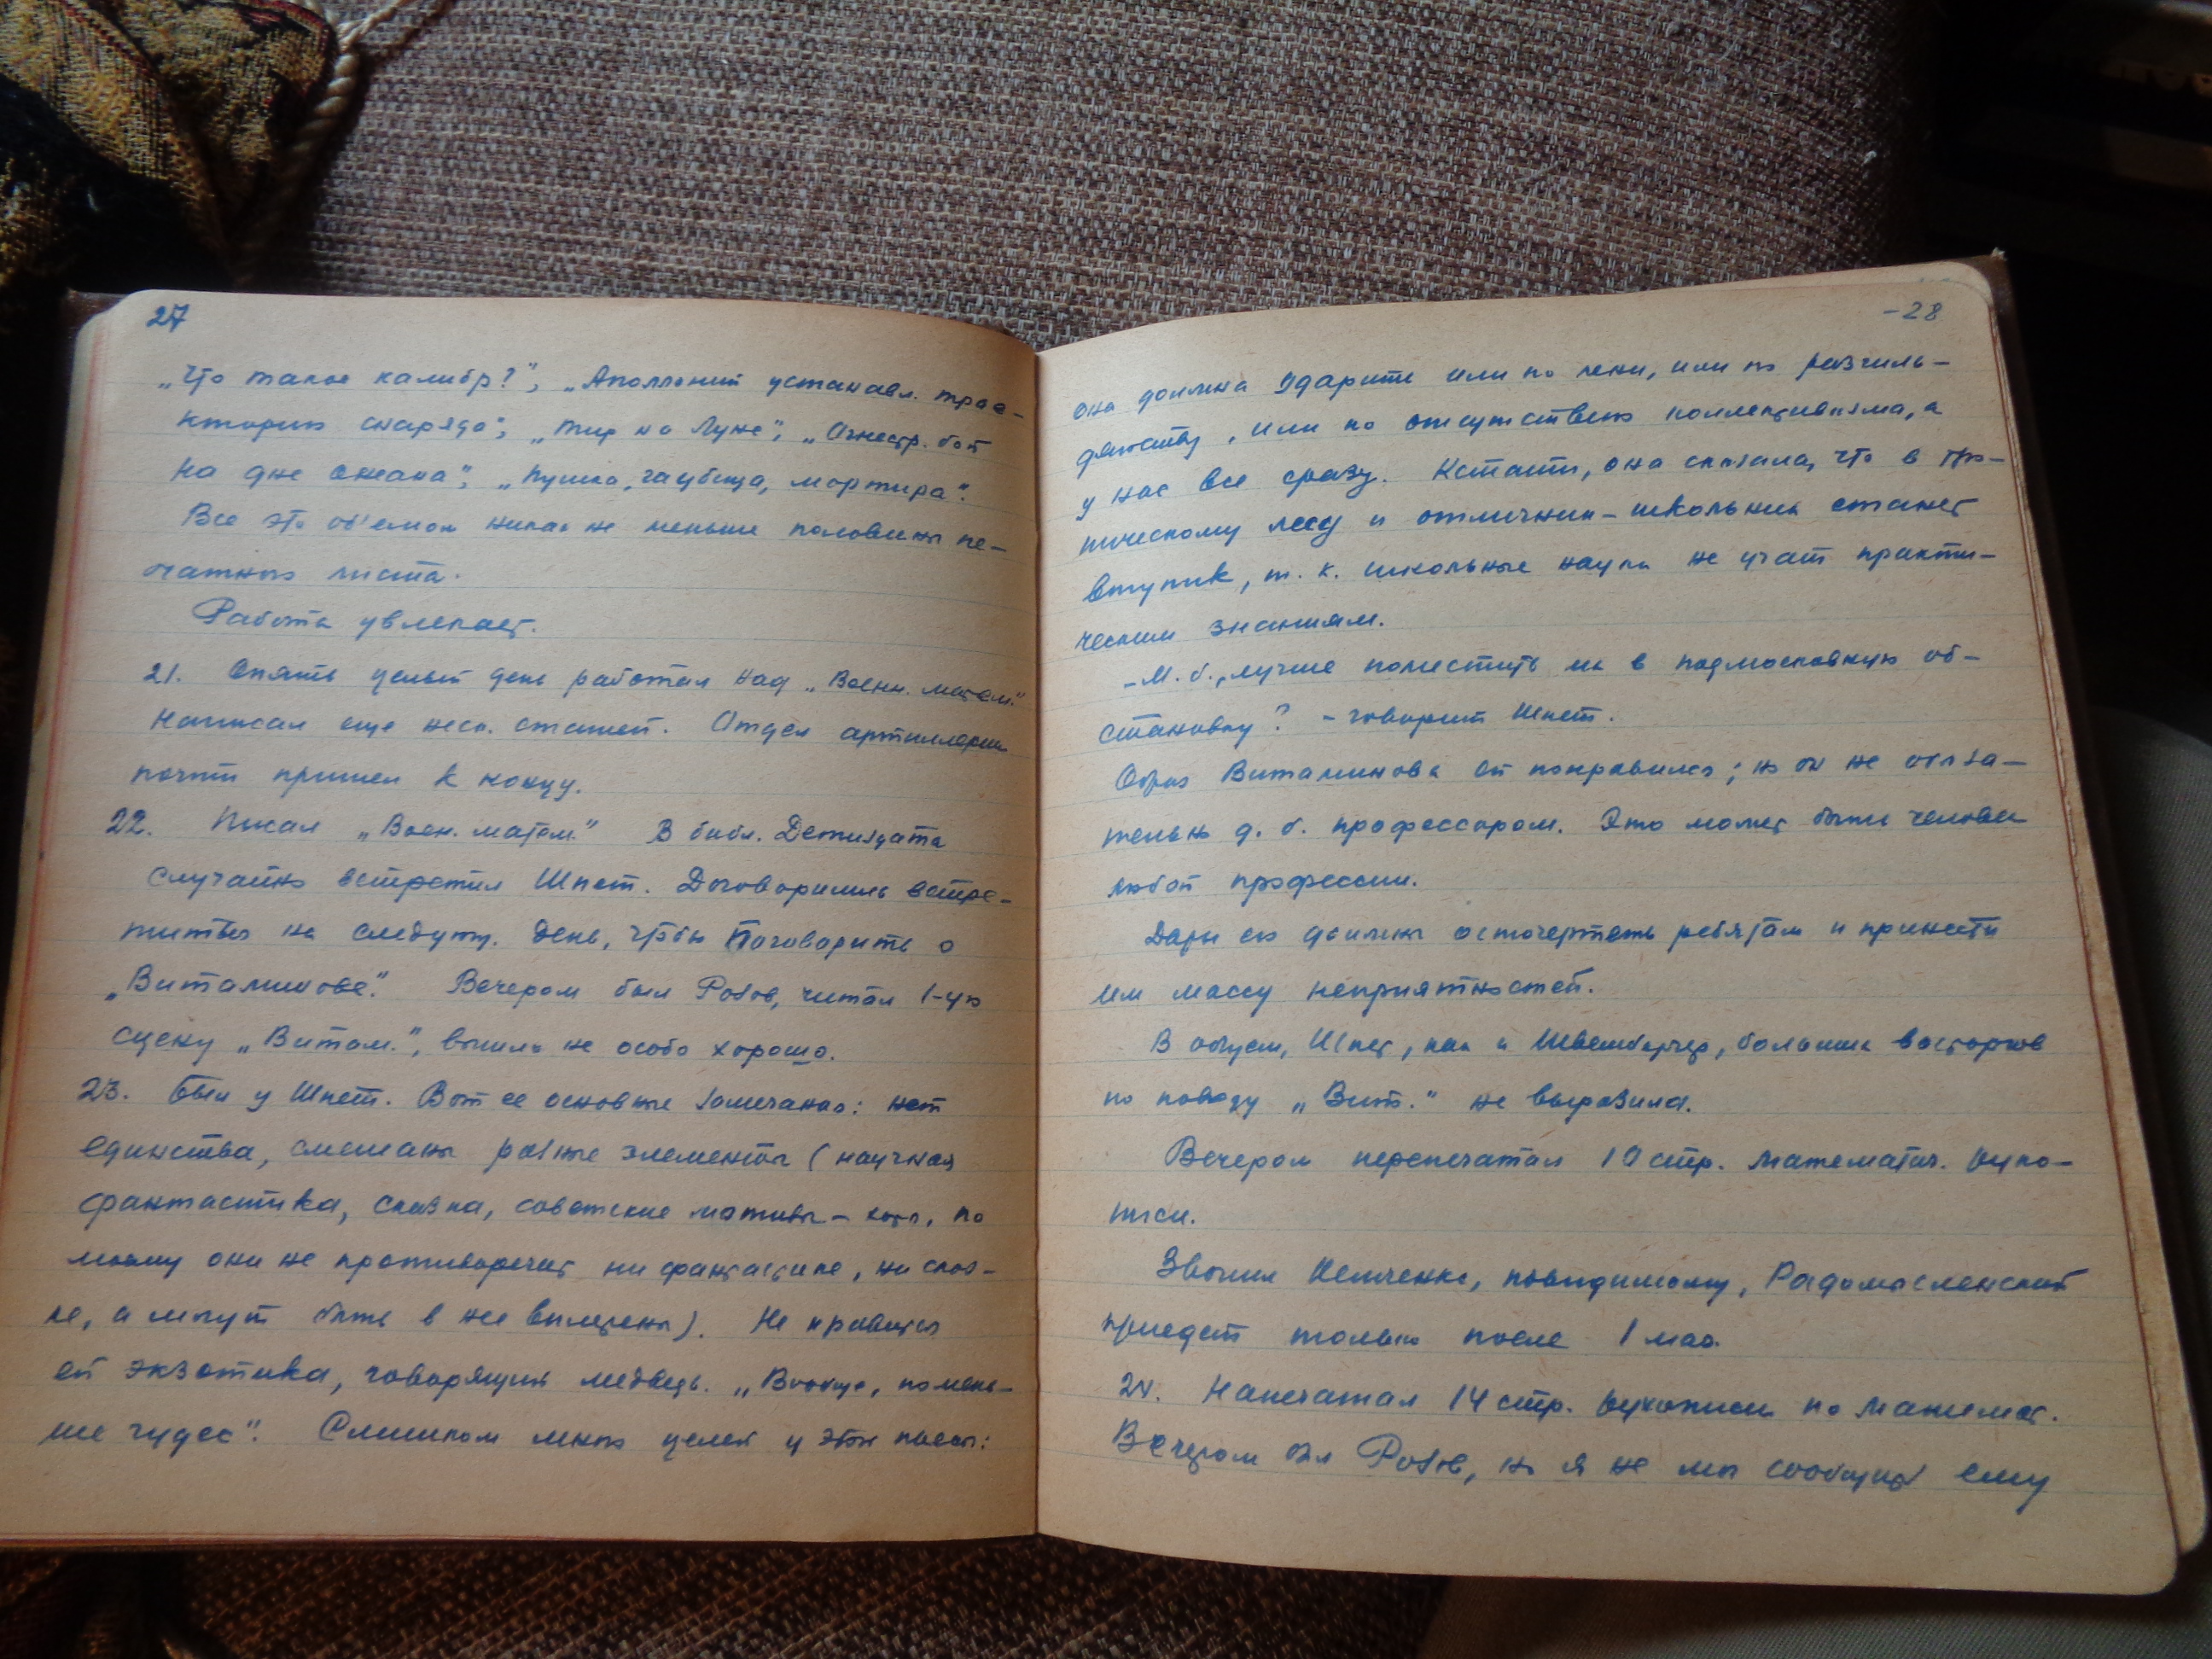 27
„Что такое калибр?", „Аполлоний устанавл. трае-
кторию снаряда", „Тир на Луне", „Огнестр. бой
на дне океана", „Пушка, гаубица, мортира".
Все это об'емом никак не меньше половины пе-
чатного листа.
Работа увлекает.
21. Опять целый день работал над „Военн. матем."
Написал еще неск. статей. Отдел артиллерии
почти пришел к концу.
22. Писал „Воен. матем." В библ. Детиздата
случайно встретил Шпет. Договорились встре-
титься на следующ. день, чтобы поговорить о
„Витаминове". Вечером был Розов, читал 1-ую
сцену „Витам.", вышла не особо хорошо.
23. Был у Шпет. Вот ее основные замечания: нет
единства, смешаны разные элементы (научная
фантастика, сказка, советские мотивы – хотя, по
моему они не противоречат ни фантастике, ни сказ-
ке, и могут быть в нее вплетены). Не нравится
ей экзотика, говорящий медведь. „Вообще, помень-
ше чудес". Слишком много целей у этой пьесы:
-28
она должна ударить или по лени, или по разгиль-
дяйству, или по отсутствию коллективизма, а
у нас все сразу. Кстати, она сказала, что в тро-
пическому лесу и отличник-школьник станет
втупик, т. к. школьные науки не учат практи-
ческим знаниям.
– М. б., лучше поместить их в подмосковную об-
становку? – говорит Шпет.
Образ Витаминова ей понравился; но он не обяза-
тельно д. б. профессором. Это может быть человек
любой профессии.
Дары его должны осточертеть ребятам и принести
им массу неприятностей.
В общем, Шпет, как и Швембергер, больших восторгов
по поводу „Вит." не выразила.
Вечером перепечатал 10 стр. математич. руко-
писи.
Звонил, повидимому, Радомысленский
приедет только после 1 мая.
24. Напечатал 14 стр. рукописи по математ.
Вечером был Розов, но я не мог сообщить ему